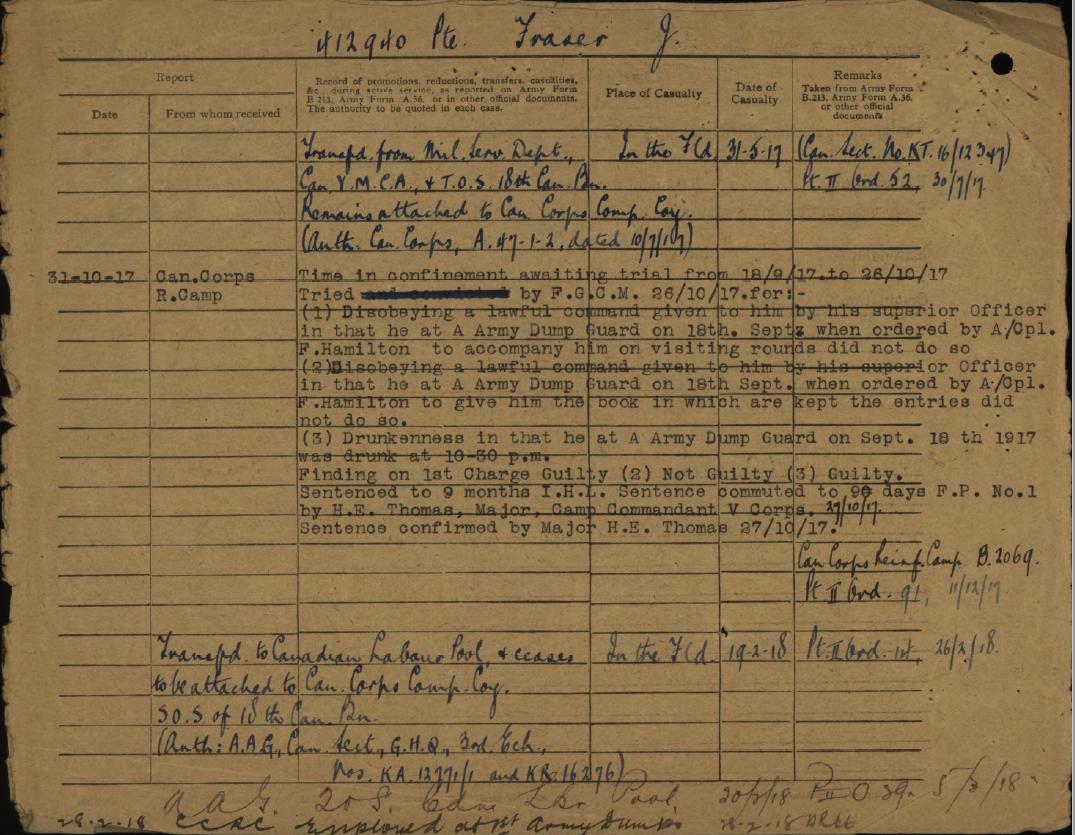 412940 Pte. Fraser J.
Report
Date
From whom received
Record of promotions, reductions, transfers, casualties,
&c., during active service, as reported on Army Form
B.213, Army Form A.36, or in other official documents.
The authority to be quoted in each case.
Place of Casualty
Date of
Casualty
Remarks
Taken from Army Form
B.213, Army Form A.36,
or other official
documents
Transfd. from Mil. Serv. Dept., In the Fld. 31-5-17 (Can. Sect. No. KT. 16/12347)
Can. Y.M.C.A., & T.O.S. 18th Can. Bn. Pt. II Ord. 52, 30/7/17
Remains attached to Can. Corps Comp. Coy.
(Auth. Can. Corps, A.47-1-2, dated 10/7/17)
31-10-17 Can.Corps Time in confinement awaiting trial from 18/9/17.to 26/10/17
R.Camp Tried and convicted by F.G.C.M. 26/10/17.for:-
(1) Disobeying a lawful command given to him by his superior Officer
in that he at A Army Dump Guard on 18th. Septz when ordered by A/Cpl.
F.Hamilton to accompany him on visiting rounds did not do so
(2)Disobeying a lawful command given to him by his superior Officer
in that he at A Army Dump Guard on 18th Sept. when ordered by A/Cpl.
F.Hamilton to give him the book in which are kept the entries did
not do so.
(3) Drunkenness in that he at A Army Dump Guard on Sept. 18 th 1917
was drunk at 10-30 p.m.
Finding on 1st Charge Guilty (2) Not Guilty (3) Guilty.
Sentenced to 9 months I.H.L. Sentence commuted to 90 days F.P. No.1
by H.E. Thomas, Major, Camp Commandant V Corps. 27/10/17.
Sentence confirmed by Major H.E. Thomas 27/10/17.
Can Corps Reinf. Camp B.2069.
Pt. II Ord. 91, 11/12/17
Transfd. to Canadian Labour Pool, & ceases In the Fld. 19-2-18 Pt. II Ord. 1st, 26/2/18.
to be attached to Can. Corps Comp. Coy.
S.O.S of 18th Can. Bn.
(Auth: A.A.G., Can. Sect., G.H.Q., 3rd. Ech.,
Nos. KA. 12771/1 and KR. 16276)
A.A.G. Can Lbr Pool. 20/2/18 PII O 39. 5/3/18
28-2-18 CCRC Employed at 1st Army Dumps 28-2-18